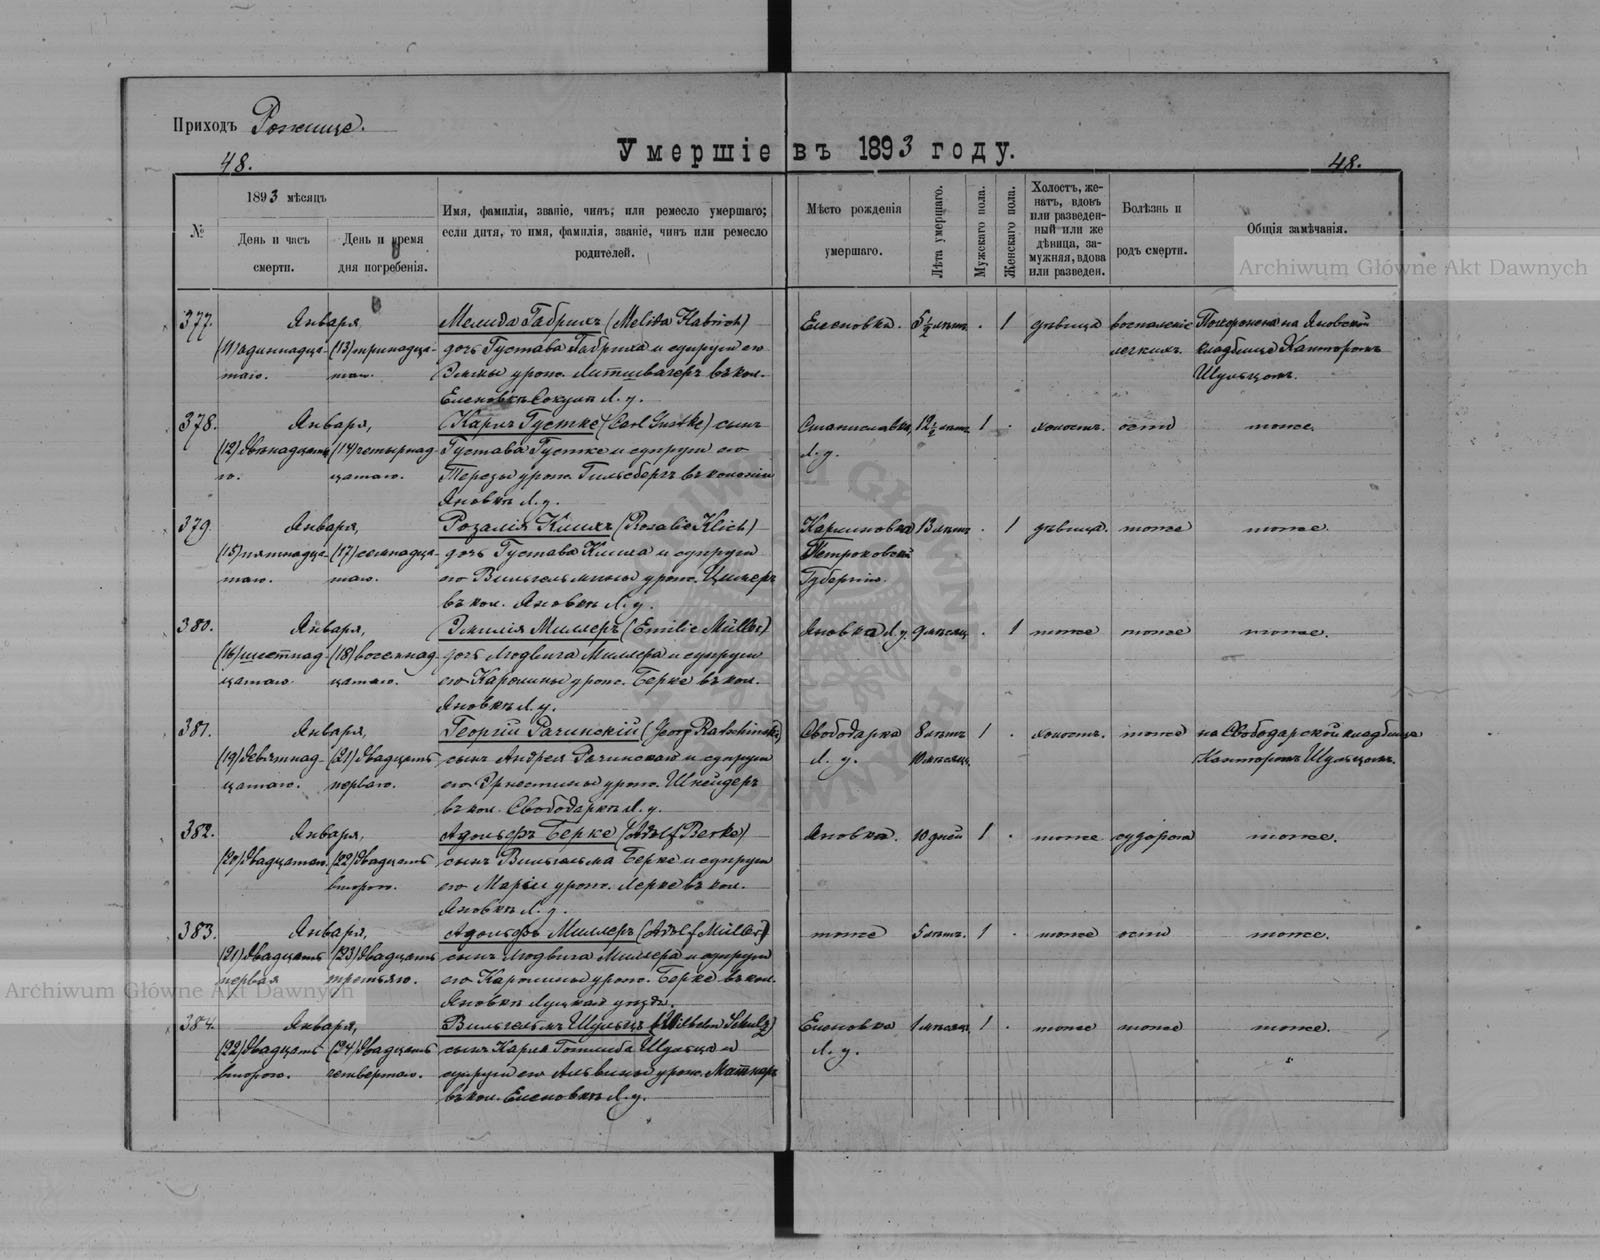 Приходъ Рожище.
Умершіе въ 1893 году.
48.
48.
№
1893 мѣсяцъ
День и часъ смерти.
День и время дня погребенія.
Имя, фамилія, званіе, чинъ; или ремесло умершаго;
если дитя, то имя, фамилія, званіе, чинъ или ремесло
родителей.
Мѣсто рожденія
умершаго.
Лѣта умершаго.
Мужскаго пола.
Женскаго пола.
Холостъ, же-
натъ, вдовъ
или разведен-
ный или же
дѣвица, за-
мужняя, вдова
или разведен.
Болѣзнь и
родъ смерти.
Общія замѣчанія.
377.
Января,
(11) одиннадца-
таго.
(13) тринадца-
таго.
Мелида Габрихъ (Melida Habrich)
дочь Густава Габриха и супруги его
Эммы урож. Литшвагеръ въ кол.
Еленовкѣ Л. у.
Еленовка.
5½ лѣтъ
.
1
дѣвица
воспаленіе
легкихъ.
Похоронена на Яновской
кладбище Канторомъ
Шульцомъ.
378.
Января,
(12) двѣнадцата-
го.
(14) четырнад-
цатаго.
Карлъ Густке (Carl Gustke) сынъ
Густава Густке и супруги его
Терезы урож. Гильсбергъ въ колоніи
Яновкѣ Л. у.
Станиславка,
Л. у.
12½ лѣтъ
1
.
холостъ.
оспа
тоже.
379
Января,
(15) пятнадца-
таго.
(17) семнадца-
таго.
Розалія Клихъ (Rosalie Klich)
дочь Густава Клиха и супруги
его Вильгельмины урож. Цилкеръ
въ кол. Яновкѣ Л. у.
Каролиновка
Петроковской
Губерніи.
13 лѣтъ
.
1
дѣвица.
тоже
тоже.
380.
Января,
(16) шестнад-
цатаго.
(18) восемнад-
цатаго.
Эмилія Миллеръ (Emilie Müller)
дочь Людвига Миллера и супруги
его Каролины урож. Берке въ кол.
Яновкѣ Л. у.
Яновка Л. у.
9 мѣсяц.
.
1
тоже
тоже
тоже.
381.
Января,
(19) девятнад-
цатаго.
(21) двадцать
перваго.
Георгій Рачинскій (Georg Ratschinski)
сынъ Андрея Рачинскаго и супруги
его Эрнестины урож. Шнейдеръ
въ кол. Свободаркѣ Л. у.
Свободарка
Л. у.
8 лѣтъ
10 мѣсяц.
1
.
холостъ.
тоже
на Свободарской кладбище
Канторомъ Шульцомъ.
382.
Января,
(20) двадцатаго.
(22) двадцать
второго.
Адольфъ Берке (Adolf Berke)
сынъ Вильгельма Берке и супруги
его Маріи урож. Лерке въ кол.
Яновкѣ Л. у.
Яновка.
10 дней
1
.
тоже
судорога
тоже.
383.
Января,
(21) двадцать
первая
(23) двадцать
третьяго.
Адольфъ Миллеръ (Adolf Müller)
сынъ Людвига Миллера и супруги
его Каролины урож. Берке въ кол.
Яновкѣ Луцкаго уѣзда.
тоже
5 лѣтъ.
1
.
тоже
оспа
тоже.
384.
Января,
(22) двадцать
второго.
(24) двадцать
четвертаго.
Вильгельмъ Шульцъ (Wilhelm Schulz)
сынъ Карла Готлиба Шульца и
супруги его Альвины урож. Матнеръ
въ кол. Еленовкѣ Л. у.
Еленовка
Л. у.
1 мѣсяцъ
1
.
тоже
тоже
тоже.
Archiwum Główne Akt Dawnych
Archiwum Główne Akt Dawnych